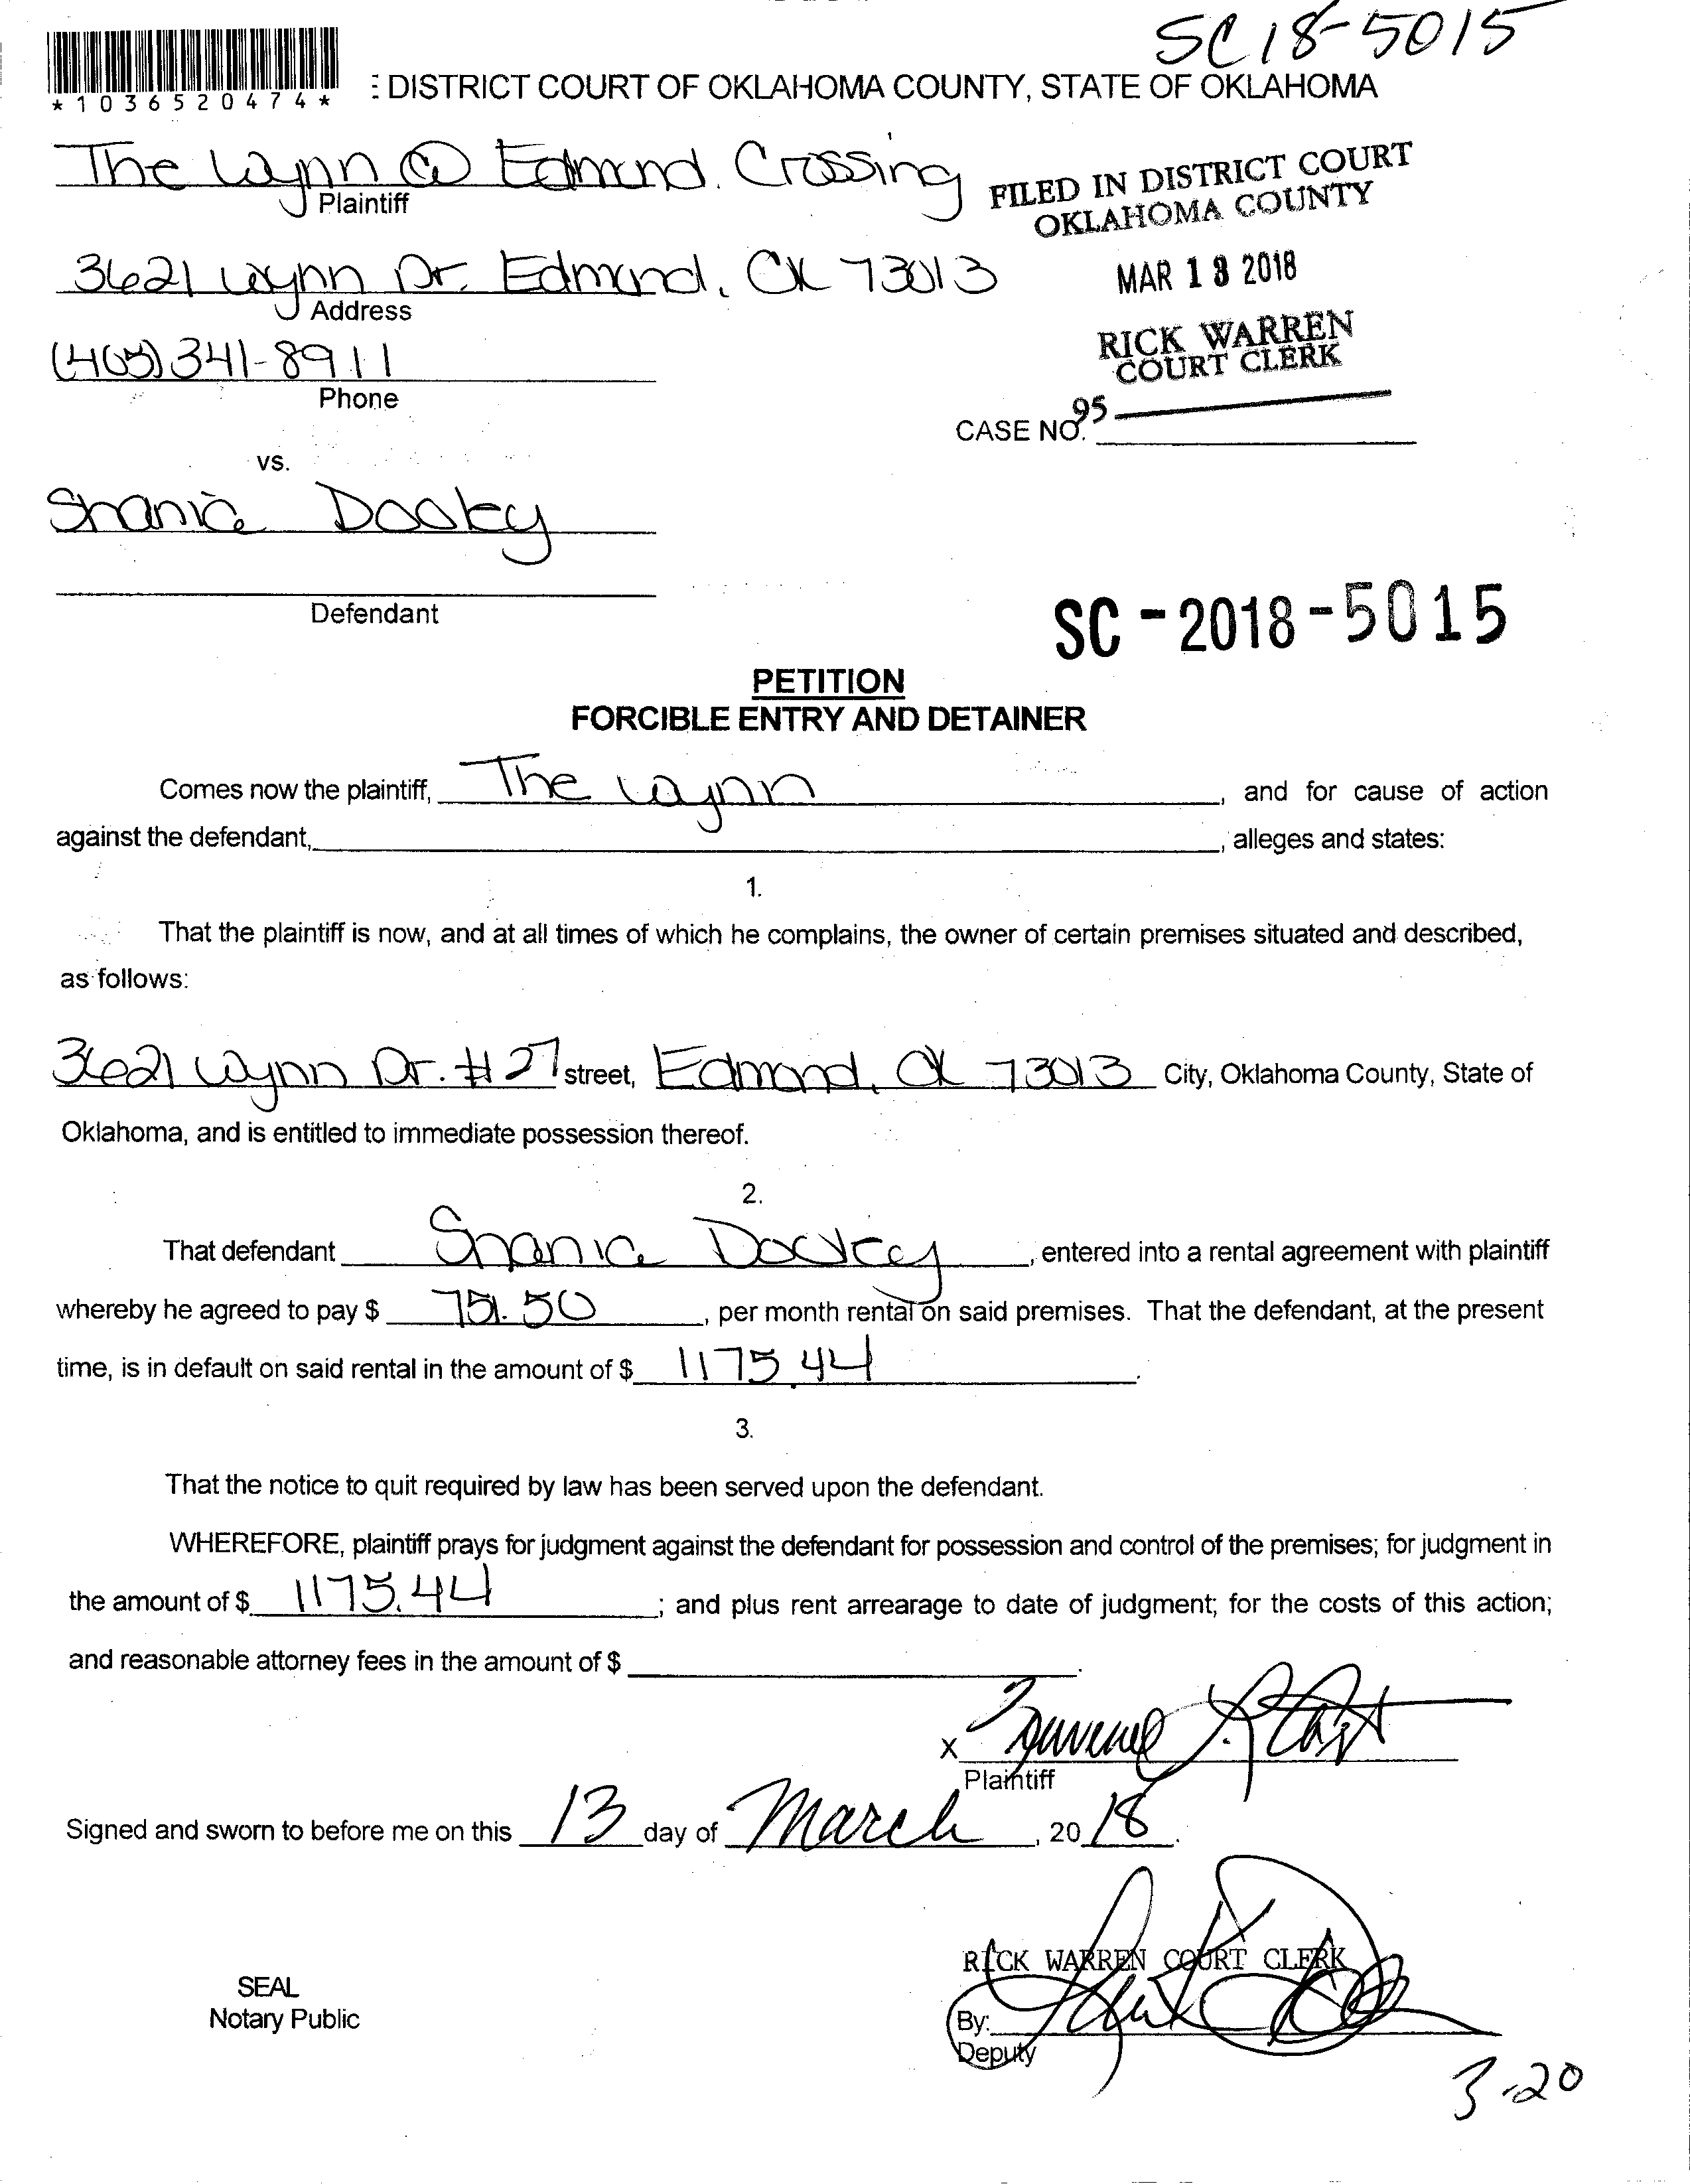 SC18-5015
*1036520474*
: DISTRICT COURT OF OKLAHOMA COUNTY, STATE OF OKLAHOMA
The Wynn @ Edmond Crossing
Plaintiff
FILED IN DISTRICT COURT
OKLAHOMA COUNTY
3621 Wynn Dr. Edmond, OK 73013
Address
MAR 13 2018
RICK WARREN
COURT CLERK
(405) 341-8911
Phone
95
CASE NO.
vs.
Shanice Dooley
Defendant
SC-2018-5015
PETITION
FORCIBLE ENTRY AND DETAINER
Comes now the plaintiff, The Wynn, and for cause of action
against the defendant, , alleges and states:
1.
That the plaintiff is now, and at all times of which he complains, the owner of certain premises situated and described,
as follows:
3621 Wynn Dr. #27 street, Edmond, OK 73013 City, Oklahoma County, State of
Oklahoma, and is entitled to immediate possession thereof.
2.
That defendant Shanice Dooley, entered into a rental agreement with plaintiff
whereby he agreed to pay $ 751.50, per month rental on said premises. That the defendant, at the present
time, is in default on said rental in the amount of $ 1175.44.
3.
That the notice to quit required by law has been served upon the defendant.
WHEREFORE, plaintiff prays for judgment against the defendant for possession and control of the premises; for judgment in
the amount of $ 1175.44; and plus rent arrearage to date of judgment; for the costs of this action;
and reasonable attorney fees in the amount of $ .
x
Plaintiff
Signed and sworn to before me on this 13 day of March, 2018.
RICK WARREN COURT CLERK
SEAL
Notary Public
By:
Deputy
3-20